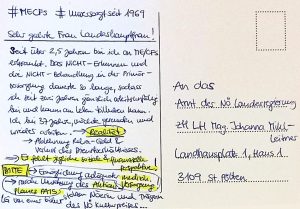 #MECFS #unversorgt seit 1969
Sehr geehrte Frau Landeshauptfrau!
Seit über 2,5 Jahren bin ich an ME/CFS
erkrankt. Das NICHT-Erkennen und
die NICHT-Behandlung in der Primär-
versorgung dauerte so lange, sodass
ich seit zwei Jahren gänzlich arbeitsunfähig
bin und kaum am Leben teilhaben kann.
Ich bin 37 Jahre, möchte gesunden und
wieder arbeiten. → Realität
→ Ablehnung Reha-Geld &
→ Es fehlt jegliche soziale & finanzielle
BITTE → Ermöglichung adäquate medizin.
Versorgung
PAIS
des NÖ Kulturpreises
An das
Amt der NÖ Landesregierung
zH LH Mag. Johanna Mikl-
Leitner
Landhausplatz 1, Haus 1
3109 St. Pölten